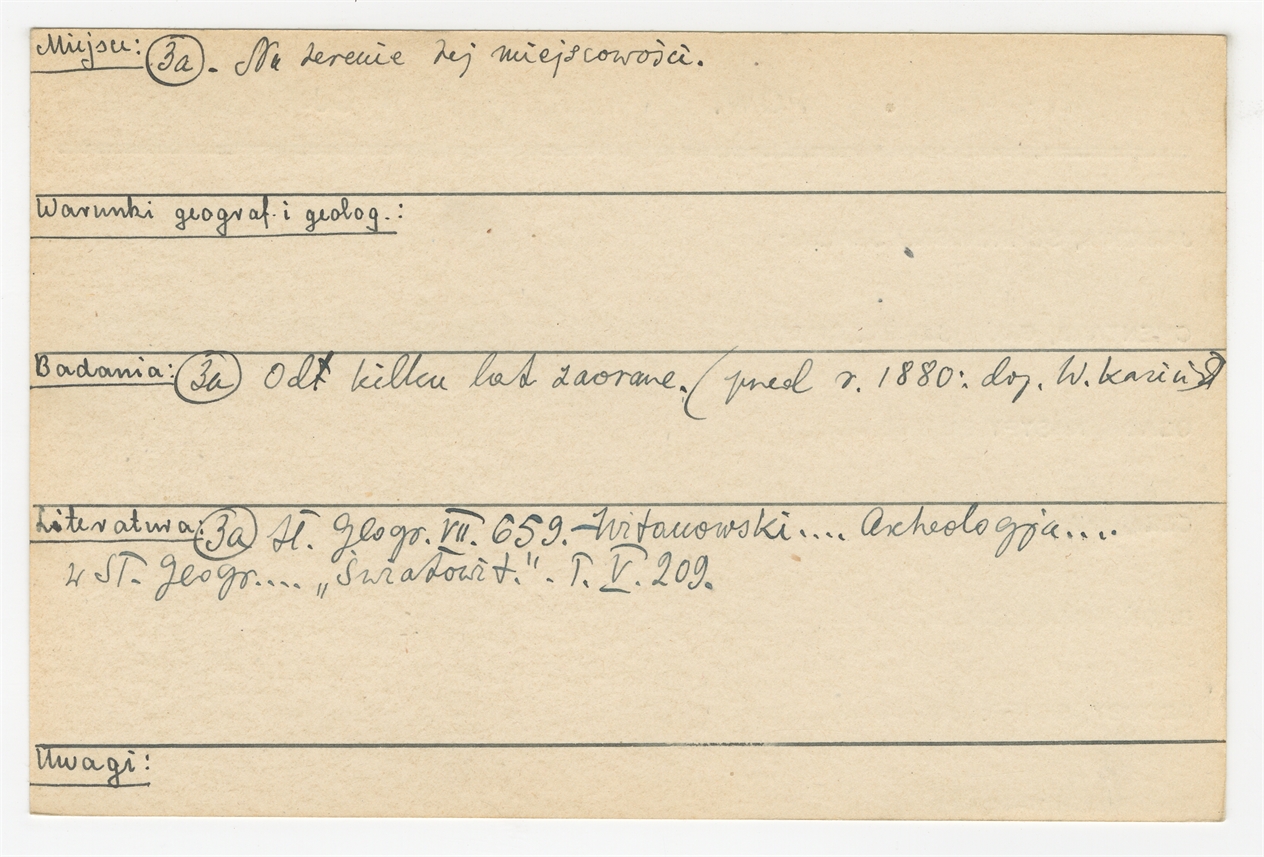 Miejsce: 3a. Na terenie tej miejscowości.
Warunki geograf. i geolog.:
Badania: 3a Od kilku lat zaorane. (przed r. 1880: dop. W. Kariń
Literatura: 3a Sł. Geogr. VII. 659. – Witanowski.... Archeologja....
w Sł. Geogr.... „Światowit.". T. V. 209.
Uwagi: